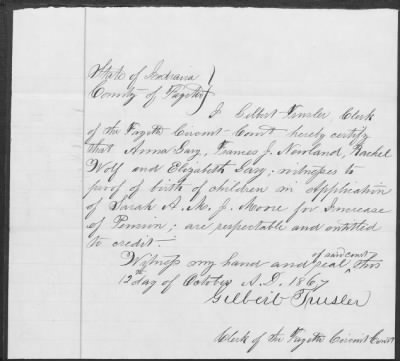 State of Indiana )
County of Fayette )
I Gilbert Trusler, Clerk
of the Fayette Circuit Court hereby certify
that Anna Gary, Frances J. Newland, Rachel
Wolf and Elizabeth Gary; witnesses to
proof of birth of children in Application
of Sarah A. M. J. Moore for Increase
of Pension; are respectable and entitled
to credit.
Witness my hand and seal of said court this
12th day of October A.D. 1867
Gilbert Trusler
Clerk of the Fayette Circuit Court